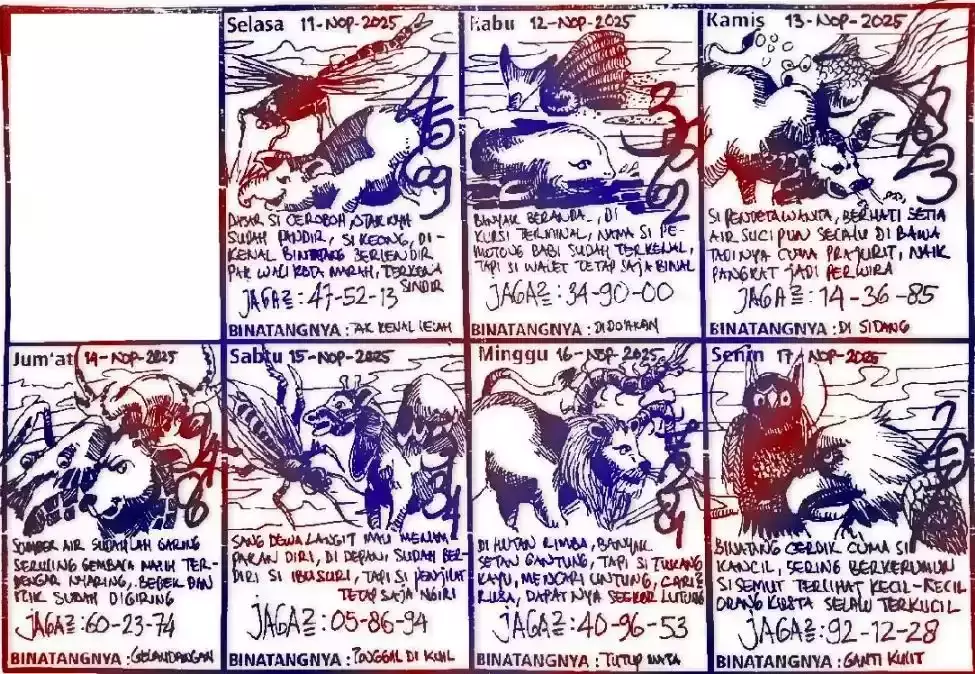 Selasa 11-NOP-2025
DASAR SI CEROBOH, OTAKNYA
SUDAH PANDIR, SI KEONG, DI-
KENAL BINATANG BERLENDIR
PAK WALI KOTA MARAH, TERKENA
SINDIR
JAGA2 : 47-52-13
BINATANGNYA : TAK KENAL LELAH
Rabu 12-NOP-2025
BANYAK BERANDA, DI
KURSI TERMINAL, NAMA SI PE-
MOTONG BABI SUDAH TERKENAL,
TAPI SI WALET TETAP SAJA BINAL
JAGA2 : 34-90-00
BINATANGNYA : DIDO'AKAN
Kamis 13-NOP-2025
SI PENDETA WANITA, BERHATI SETIA
AIR SUCI PUN SELALU DI BAWA
TADINYA CUMA PRAJURIT, NAIK
PANGKAT JADI PERWIRA
JAGA2 : 14-36-85
BINATANGNYA : DI SIDANG
Jum'at 14-NOP-2025
SUMBER AIR SUDAHLAH GARING
SERULING GEMBALA MASIH TER-
DENGAR NYARING, BEBEK DAN
ITIK SUDAH DIGIRING
JAGA2 : 60-23-74
BINATANGNYA : GELANDANGAN
Sabtu 15-NOP-2025
SANG DEWA LANGIT MAU MENAM
PAKAN DIRI, DI DEPAN, SUDAH BER-
DIRI SI IBUSURI, TAPI SI PENJILAT
TETAP SAJA NGIRI
JAGA2 : 05-86-94
BINATANGNYA : PONGGAL DI KUIL
Minggu 16-NOP-2025
DI HUTAN RIMBA, BANYAK
SETAN GANTUNG, TAPI SI TUKANG
KAYU, MENCARI UNTUNG, CARI2
RUSA, DAPATNYA SEEKOR LUTUNG
JAGA2 : 40-96-53
BINATANGNYA : TUTUP MATA
Senin 17-NOP-2025
BINATANG CERDIK CUMA SI
KANCIL, SERING BERKERUMUN
SI SEMUT TERLIHAT KECIL-KECIL
ORANG KUSTA SELALU TERKUCIL
JAGA2 : 92-12-28
BINATANGNYA : GANTI KULIT